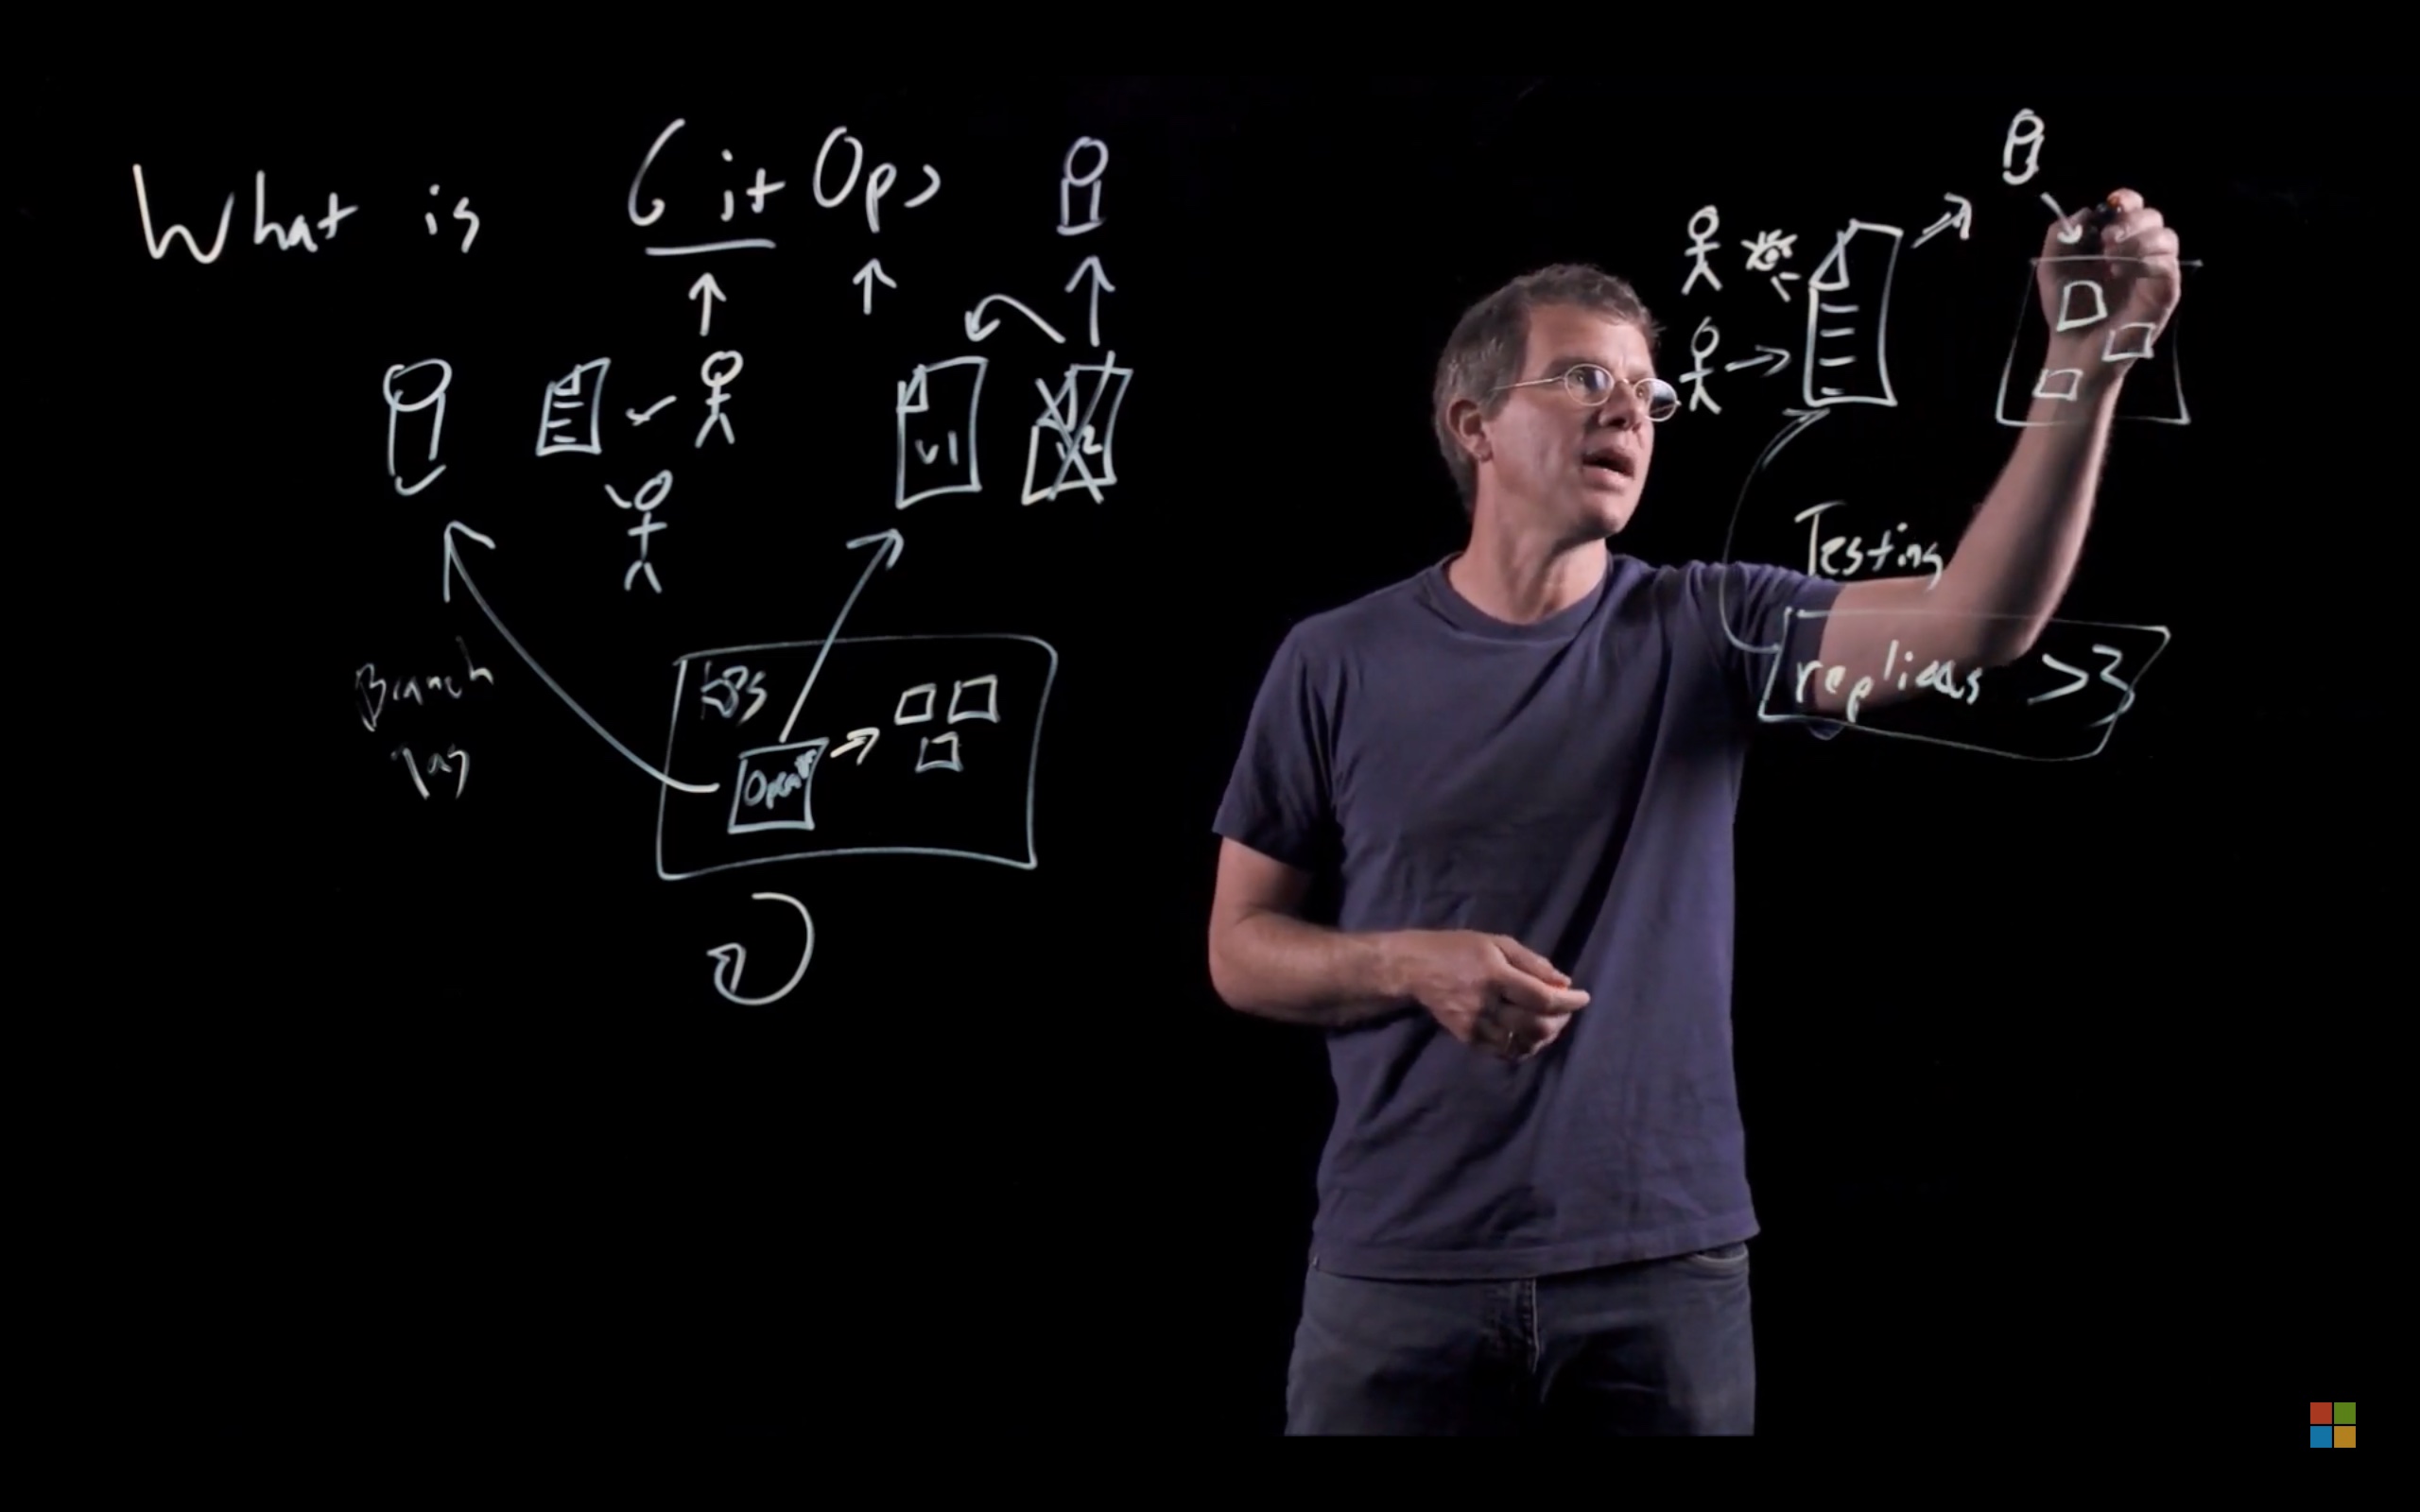 What is GitOps
v1
v2
Branch
Tag
k8s
Oper
Testing
replicas >3